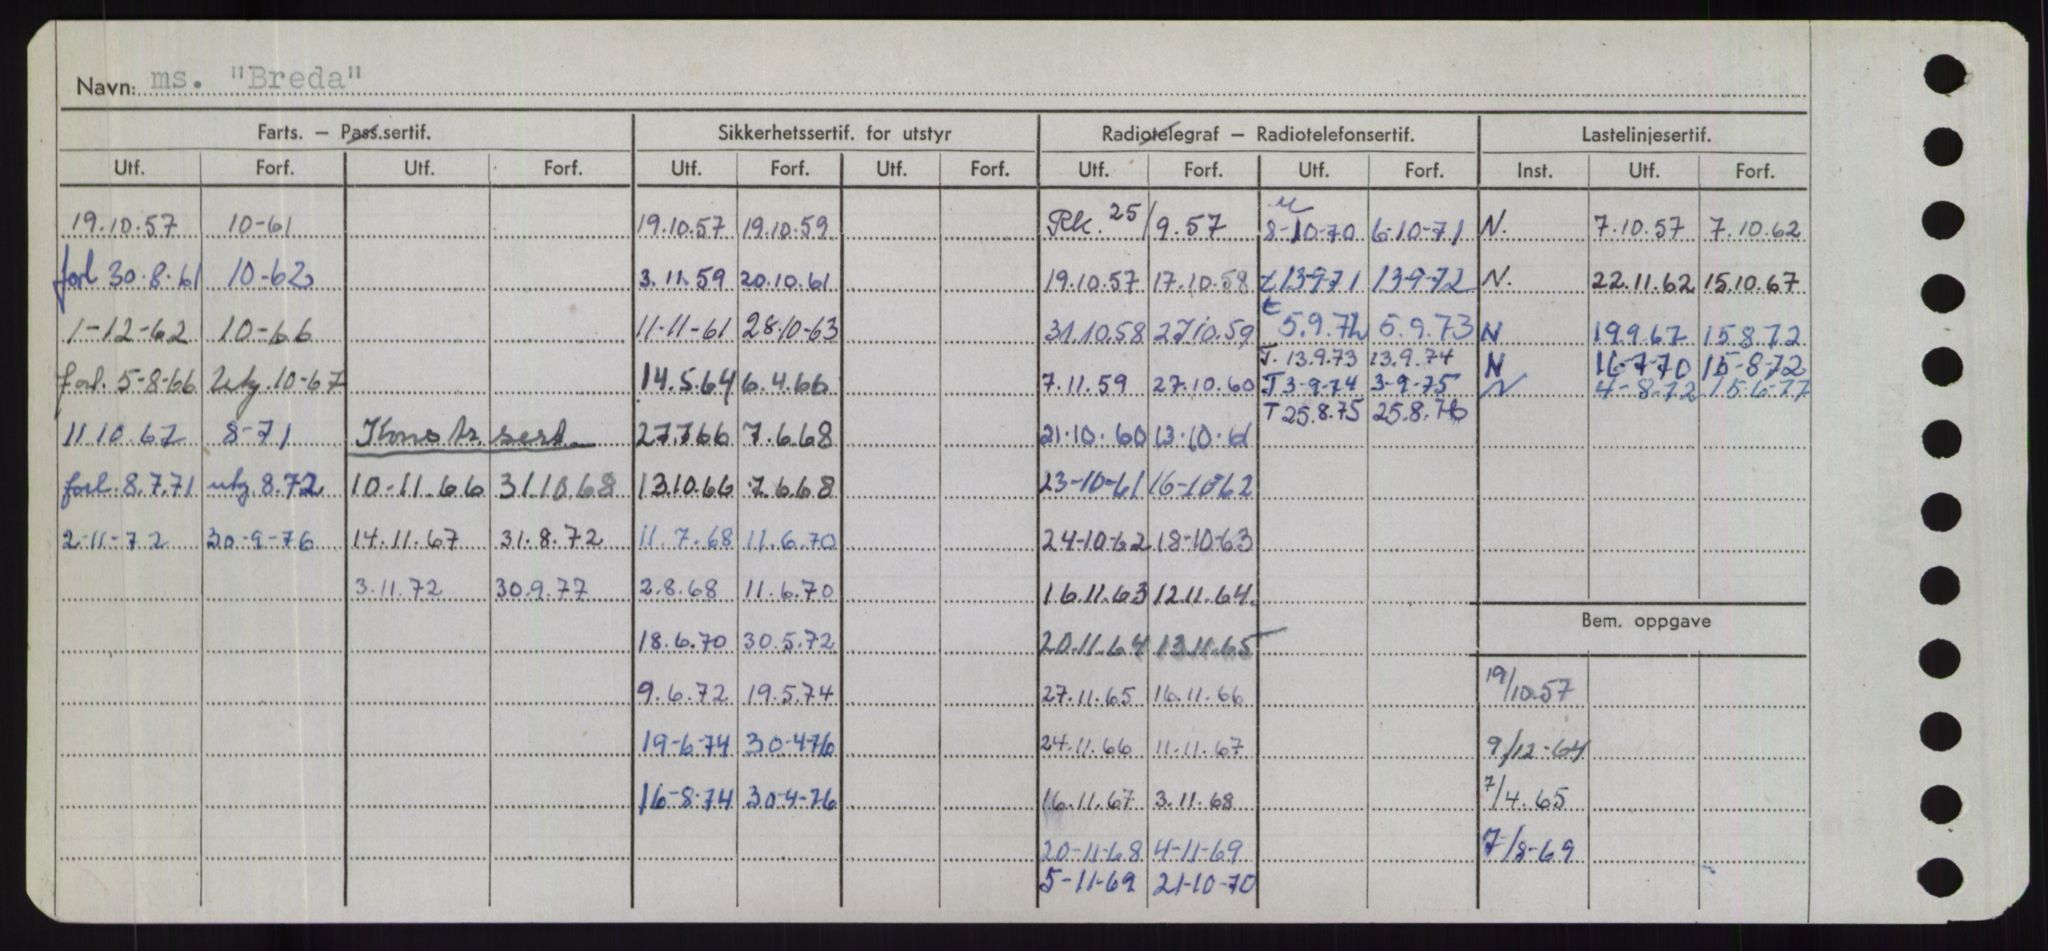 Navn: ms. "Breda"
Farts. – Pass.sertif. Sikkerhetssertif. for utstyr Radiotelegraf – Radiotelefonsertif. Lastelinjesertif.
Utf. Forf. Utf. Forf. Utf. Forf. Utf. Forf. Utf. Forf. Utf. Forf. Inst. Utf. Forf.
19.10.57 10-61 19.10.57 19.10.59 Rk. 25/9.57 8-10-70 6-10-71 N. 7.10.57 7.10.62
forl 30.8.61 10-62 3.11.59 20.10.61 19.10.57 17.10.58 t 13-9-71 13-9-72 N. 22.11.62 15.10.67
1-12-62 10-66 11-11-61 28-10-63 31.10.58 27.10.59 t 5.9.72 5.9.73 N 19.9.67 15.8.72
T. 13.9.73 13.9.74 N 16-7-70 15-8-72
forl. 5-8-66 utg. 10-67 14.5.64 6.4.66 7.11.59 27.10.60 T 3-9-74 3-9-75 N 4-8-72 15-6-77
T 25.8.75 25.8.76
11.10.67 8-71 Konstr. sert. 27.7.66 7.6.68 21.10.60 13.10.61
forl. 8.7.71 utg. 8.72 10-11.66 31.10.68 13.10.66 7.6.68 23-10-61 16-10-62
2-11-72 30-9-76 14.11.67 31.8.72 11.7.68 11.6.70 24-10-62 18-10-63
3.11.72 30.9.77 2.8.68 11.6.70 16.11.63 12.11.64.
Bem. oppgave
18.6.70 30.5.72 20.11.64 13.11.65
9.6.72 19.5.74 27.11.65 16.11.66 19/10.57
19-6-74 30-4-76 24.11.66 11.11.67 9/12-64
16-8-74 30-4-76 16.11.67 3.11.68 7/4.65
20-11-68 4-11-69 7/8-69
5-11-69 21-10-70